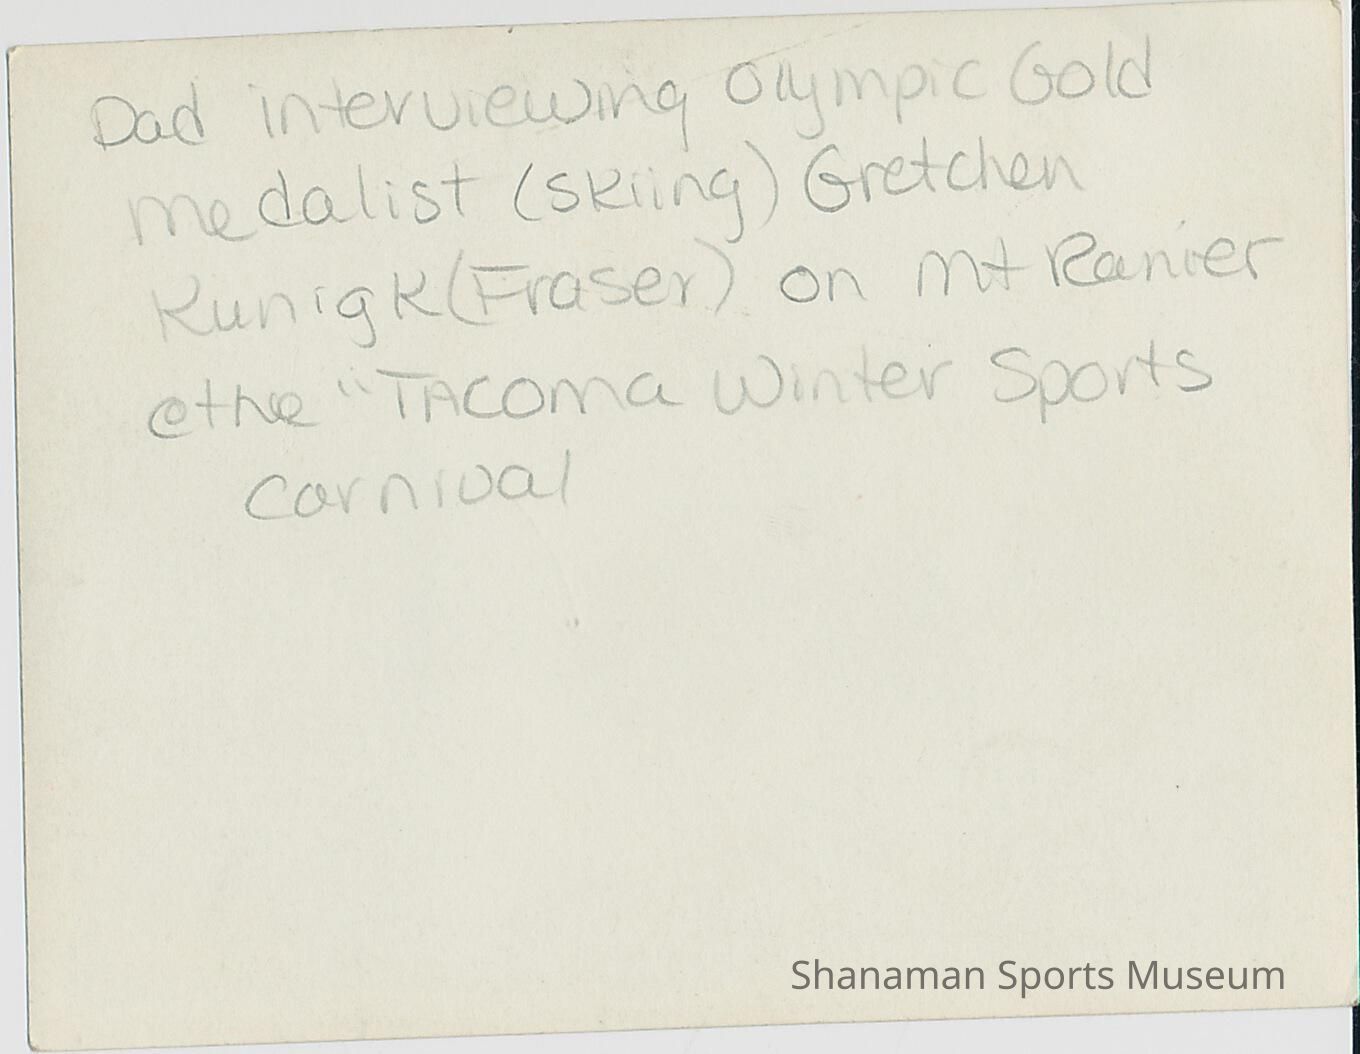 Dad interviewing Olympic Gold
medalist (skiing) Gretchen
Kunigk (Fraser) on Mt Ranier
@the "TACOMA Winter Sports
Carnival
Shanaman Sports Museum